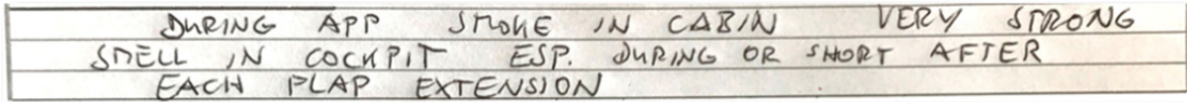 DURING APP SMOKE IN CABIN VERY STRONG
SMELL IN COCKPIT ESP. DURING OR SHORT AFTER
EACH FLAP EXTENSION